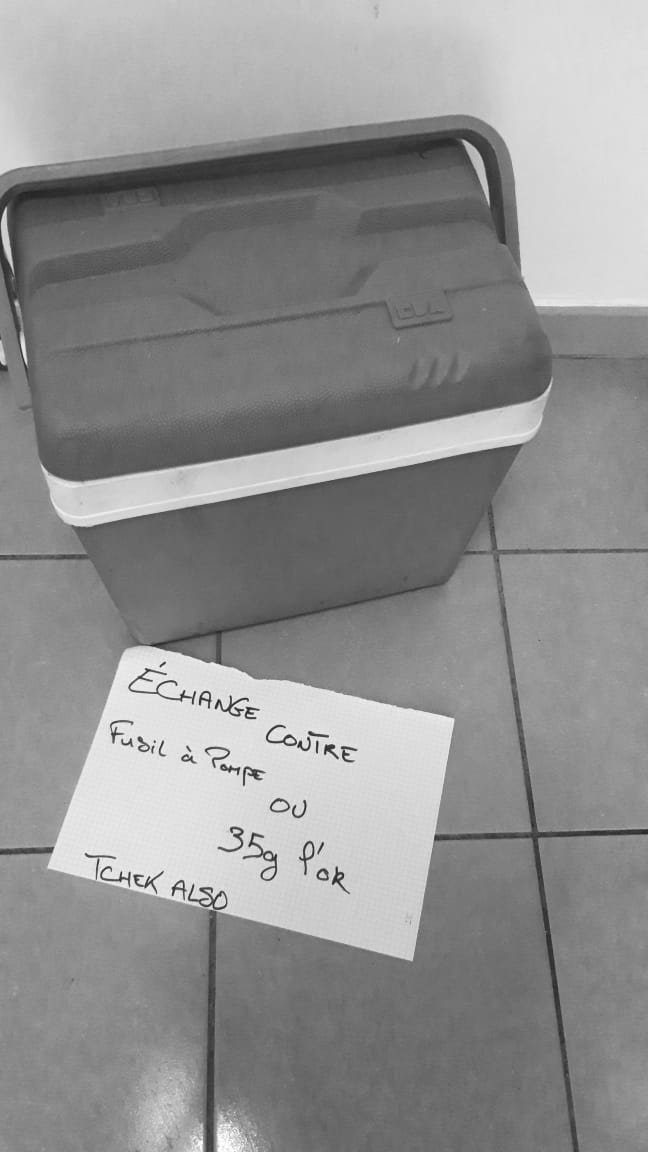 ÉCHANGE CONTRE
Fusil à Pompe
OU
35g l'or
TCHEK ALSO